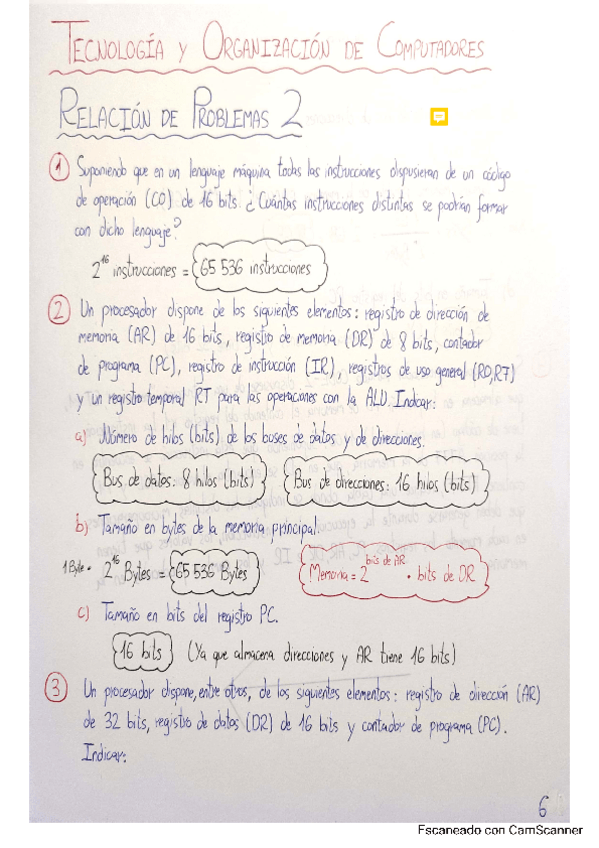 TECNOLOGÍA Y ORGANIZACIÓN DE COMPUTADORES
RELACIÓN DE PROBLEMAS 2
① Suponiendo que en un lenguaje máquina todas las instrucciones dispusieran de un código
de operación (CO) de 16 bits. ¿Cuántas instrucciones distintas se podrían formar
con dicho lenguaje?
2¹⁶ instrucciones = 65 536 instrucciones
② Un procesador dispone de los siguientes elementos: registro de dirección de
memoria (AR) de 16 bits, registro de memoria (DR) de 8 bits, contador
de programa (PC), registro de instrucción (IR), registros de uso general (R0,R7)
y un registro temporal RT para las operaciones con la ALU. Indicar:
a) Número de hilos (bits) de los buses de datos y de direcciones.
Bus de datos: 8 hilos (bits) Bus de direcciones: 16 hilos (bits)
b) Tamaño en bytes de la memoria principal.
1 Byte · 2¹⁶ Bytes = 65 536 Bytes Memoria = 2^bits de AR · bits de DR
c) Tamaño en bits del registro PC.
16 bits (Ya que almacena direcciones y AR tiene 16 bits)
③ Un procesador dispone, entre otros, de los siguientes elementos: registro de dirección (AR)
de 32 bits, registro de datos (DR) de 16 bits y contador de programa (PC).
Indicar:
6
Escaneado con CamScanner